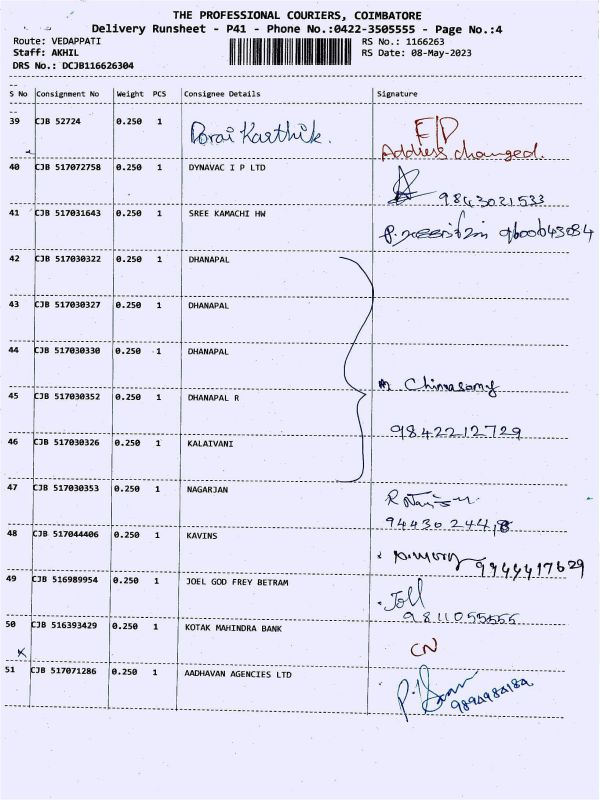 THE PROFESSIONAL COURIERS, COIMBATORE
Delivery Runsheet - P41 - Phone No.:0422-3505555 - Page No.:4
Route: VEDAPPATI RS No.: 1166263
Staff: AKHIL RS Date: 08-May-2023
DRS No.: DCJB116626304
S No Consignment No Weight PCS Consignee Details Signature
39 CJB 52724 0.250 1 Dorai Karthik. F/D
Address changed.
40 CJB 517072758 0.250 1 DYNAVAC I P LTD
9843021533
41 CJB 517031643 0.250 1 SREE KAMACHI HW
9600643084
42 CJB 517030322 0.250 1 DHANAPAL
43 CJB 517030327 0.250 1 DHANAPAL
44 CJB 517030330 0.250 1 DHANAPAL
Chinnasamy
45 CJB 517030352 0.250 1 DHANAPAL R
9842212729
46 CJB 517030326 0.250 1 KALAIVANI
47 CJB 517030353 0.250 1 NAGARJAN
48 CJB 517044406 0.250 1 KAVINS
9944417629
49 CJB 516989954 0.250 1 JOEL GOD FREY BETRAM
9811055555
50 CJB 516393429 0.250 1 KOTAK MAHINDRA BANK
CN
51 CJB 517071286 0.250 1 AADHAVAN AGENCIES LTD